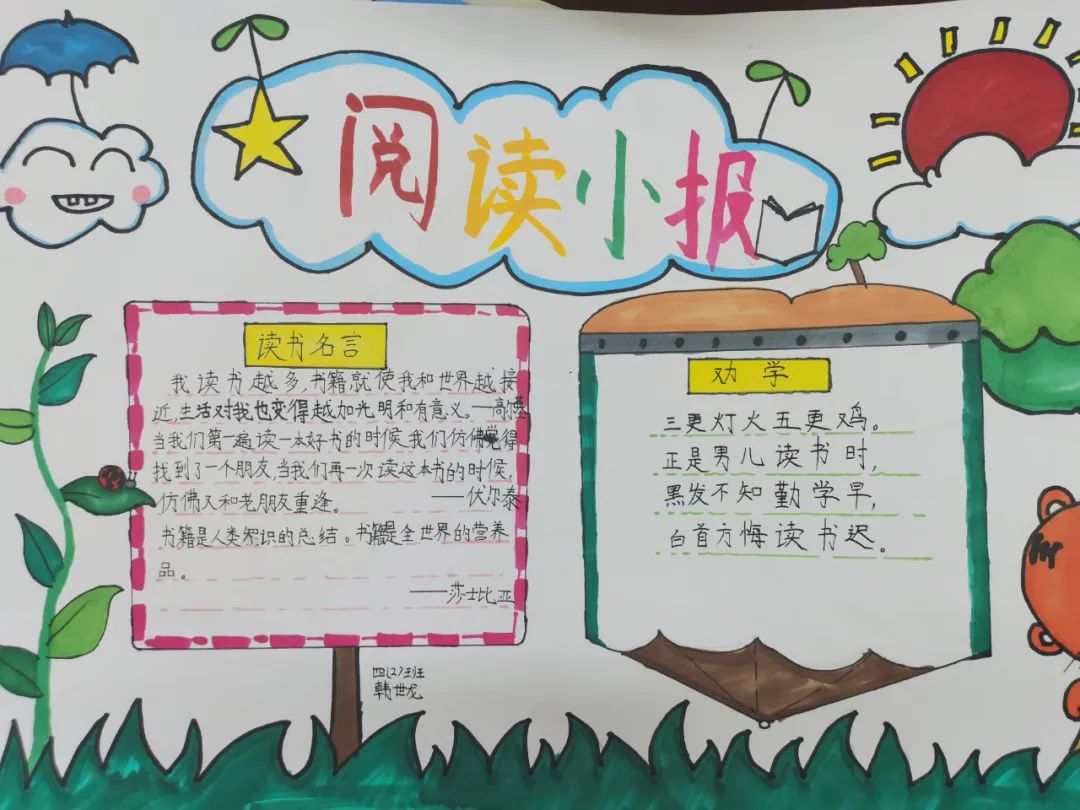 阅读小报
读书名言
我读书越多,书籍就使我和世界越接
近,生活对我也变得越加光明和有意义。—高尔基
当我们第一遍读一本好书的时候,我们仿佛觉得
找到了一个朋友,当我们再一次读这本书的时候,
仿佛又和老朋友重逢。——伏尔泰
书籍是人类知识的总结。书籍是全世界的营养
品。
——莎士比亚
四(2)班
韩世龙
劝学
三更灯火五更鸡。
正是男儿读书时,
黑发不知勤学早,
白首方悔读书迟。